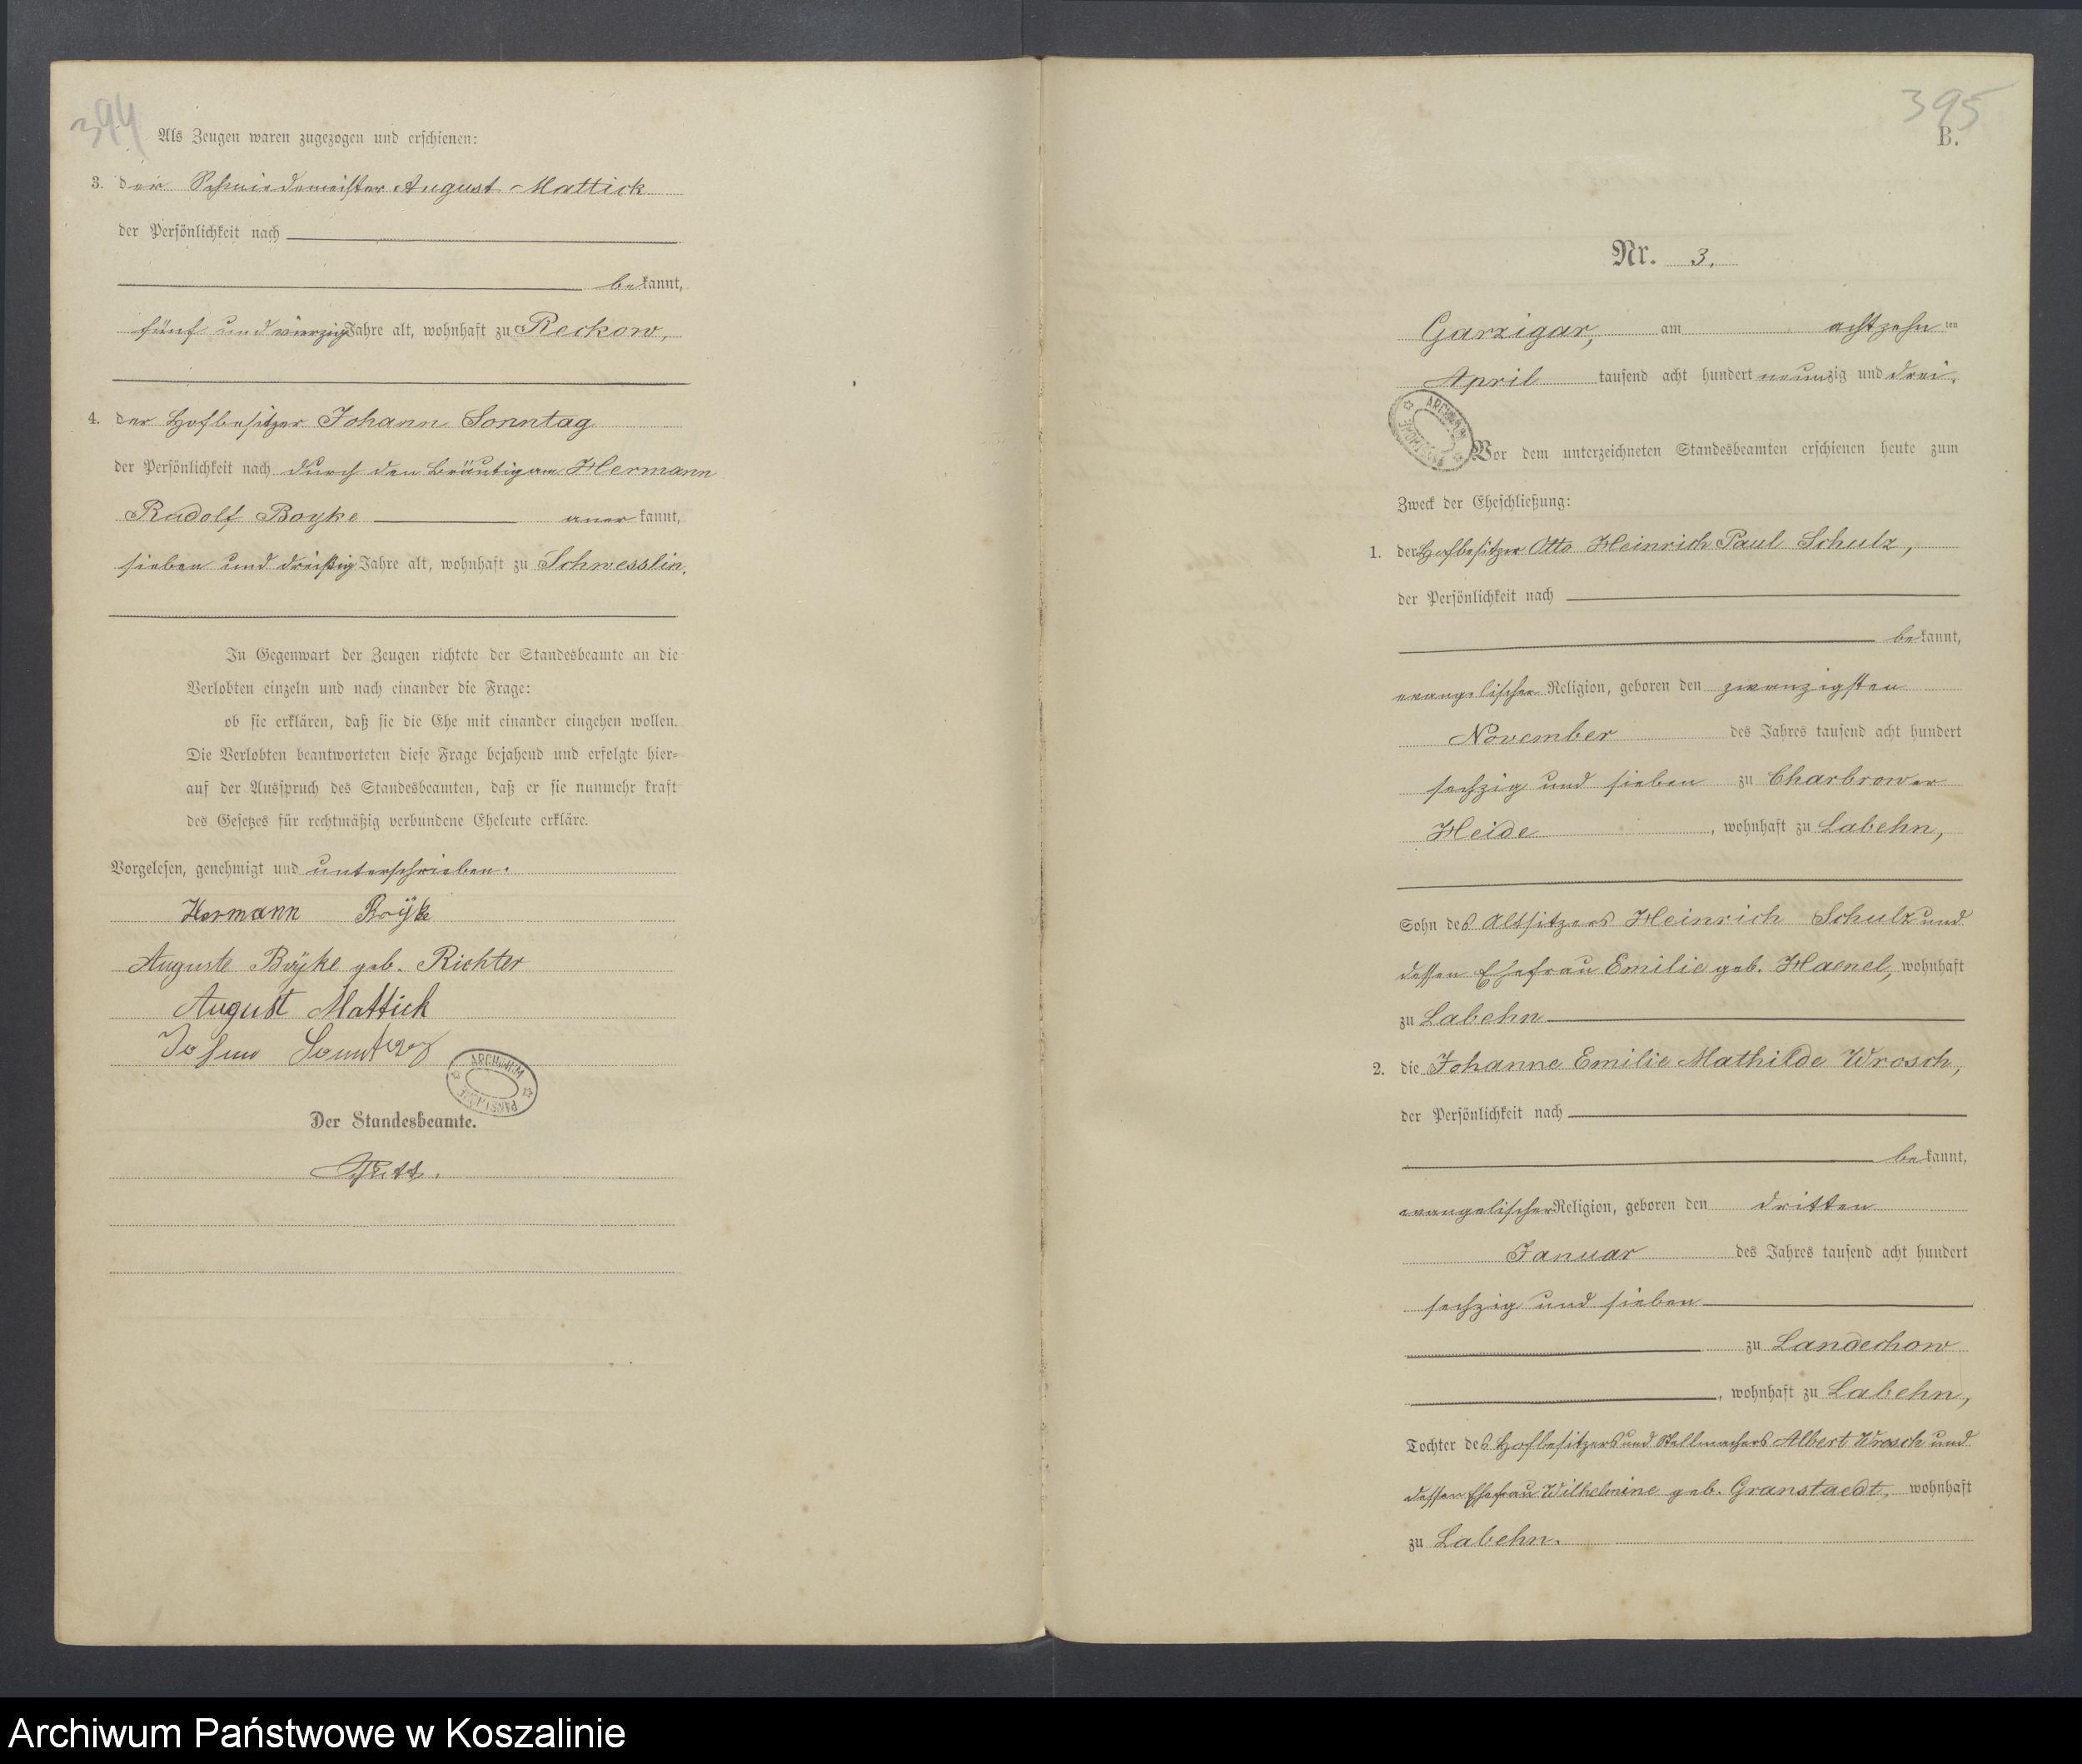 394
Als Zeugen waren zugezogen und erschienen:
3. der Schmiedemeister August Mattick
der Persönlichkeit nach
bekannt,
fünf und vierzig Jahre alt, wohnhaft zu Reckow,
4. der Hofbesitzer Johann Sonntag
der Persönlichkeit nach durch den Bräutigam Hermann
Rudolf Boyke anerkannt,
sieben und dreißig Jahre alt, wohnhaft zu Schwesslin.
In Gegenwart der Zeugen richtete der Standesbeamte an die
Verlobten einzeln und nach einander die Frage:
ob sie erklären, daß sie die Ehe mit einander eingehen wollen.
Die Verlobten beantworteten diese Frage bejahend und erfolgte hier-
auf der Ausspruch des Standesbeamten, daß er sie nunmehr kraft
des Gesetzes für rechtmäßig verbundene Eheleute erkläre.
Vorgelesen, genehmigt und unterschrieben.
Hermann Boÿke
Auguste Boÿke geb. Richter
August Mattick
Johann Sonntag
ARCHIWUM PAŃSTWOWE
Der Standesbeamte.
395
B.
Nr. 3.
Garzigar, am achtzehnten
April tausend acht hundert neunzig und drei.
ARCHIWUM PAŃSTWOWE
Vor dem unterzeichneten Standesbeamten erschienen heute zum
Zweck der Eheschließung:
1. der Hofbesitzer Otto Heinrich Paul Schulz,
der Persönlichkeit nach
bekannt,
evangelischer Religion, geboren den zwanzigsten
November des Jahres tausend acht hundert
sechzig und sieben zu Charbrower
Heide, wohnhaft zu Labehn,
Sohn des Altsitzers Heinrich Schulz und
dessen Ehefrau Emilie geb. Haenel, wohnhaft
zu Labehn
2. die Johanne Emilie Mathilde Wrosch,
der Persönlichkeit nach
bekannt,
evangelischer Religion, geboren den dritten
Januar des Jahres tausend acht hundert
sechzig und sieben
zu Landechow
, wohnhaft zu Labehn,
Tochter des Hofbesitzers und Stellmachers Albert Wrosch und
dessen Ehefrau Wilhelmine geb. Granstaedt, wohnhaft
zu Labehn.
Archiwum Państwowe w Koszalinie